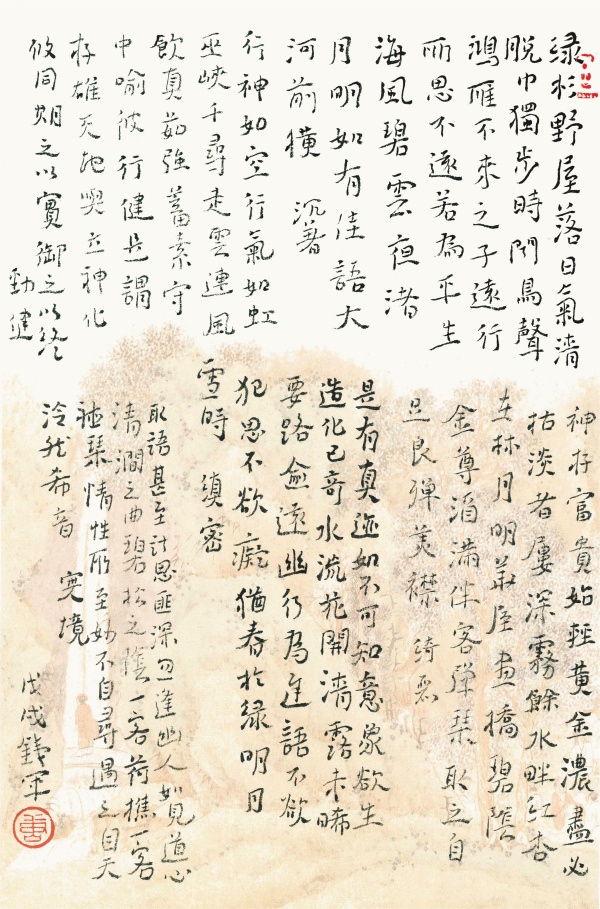 绿杉野屋落日氣清
脱巾獨步時聞鳥聲
鴻雁不來之子遠行
所思不遠若為平生
海風碧雲夜渚
月明如有佳語大
河前横 沉著
行神如空行氣如虹
巫峽千尋走雲連風
飲真茹強蓄素守
中喻彼行健是謂
存雄天地與立神化
攸同期之以實御之以終
勁健
神存富貴始輕黄金濃盡必
枯淡者屢深霧餘水畔紅杏
在林月明華屋畫橋碧陰
金尊酒滿伴客彈琴取之自
足良殫美襟 綺麗
是有真迹如不可知意象欲生
造化已奇水流花開清露未晞
要路愈遠幽行為遲語不欲
犯思不欲癡猶春於绿明月
雪時 縝密
取語甚直計思匪深忽逢幽人如見道心
清澗之曲碧松之陰一客荷樵一客
聽琴情性所至妙不自尋遇之自天
泠然希音 實境
戊戌錢军